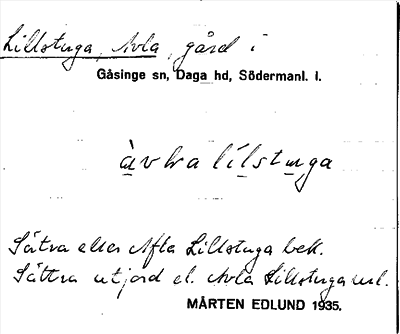 Lillstuga, Avla, gård i
Gåsinge sn, Daga hd, Södermanl. l.
àvLra lílstuga
Sätra eller Afla Lillstuga bek.
Sättra utjord el. Avla Lillstuga url.
MÅRTEN EDLUND 1935.